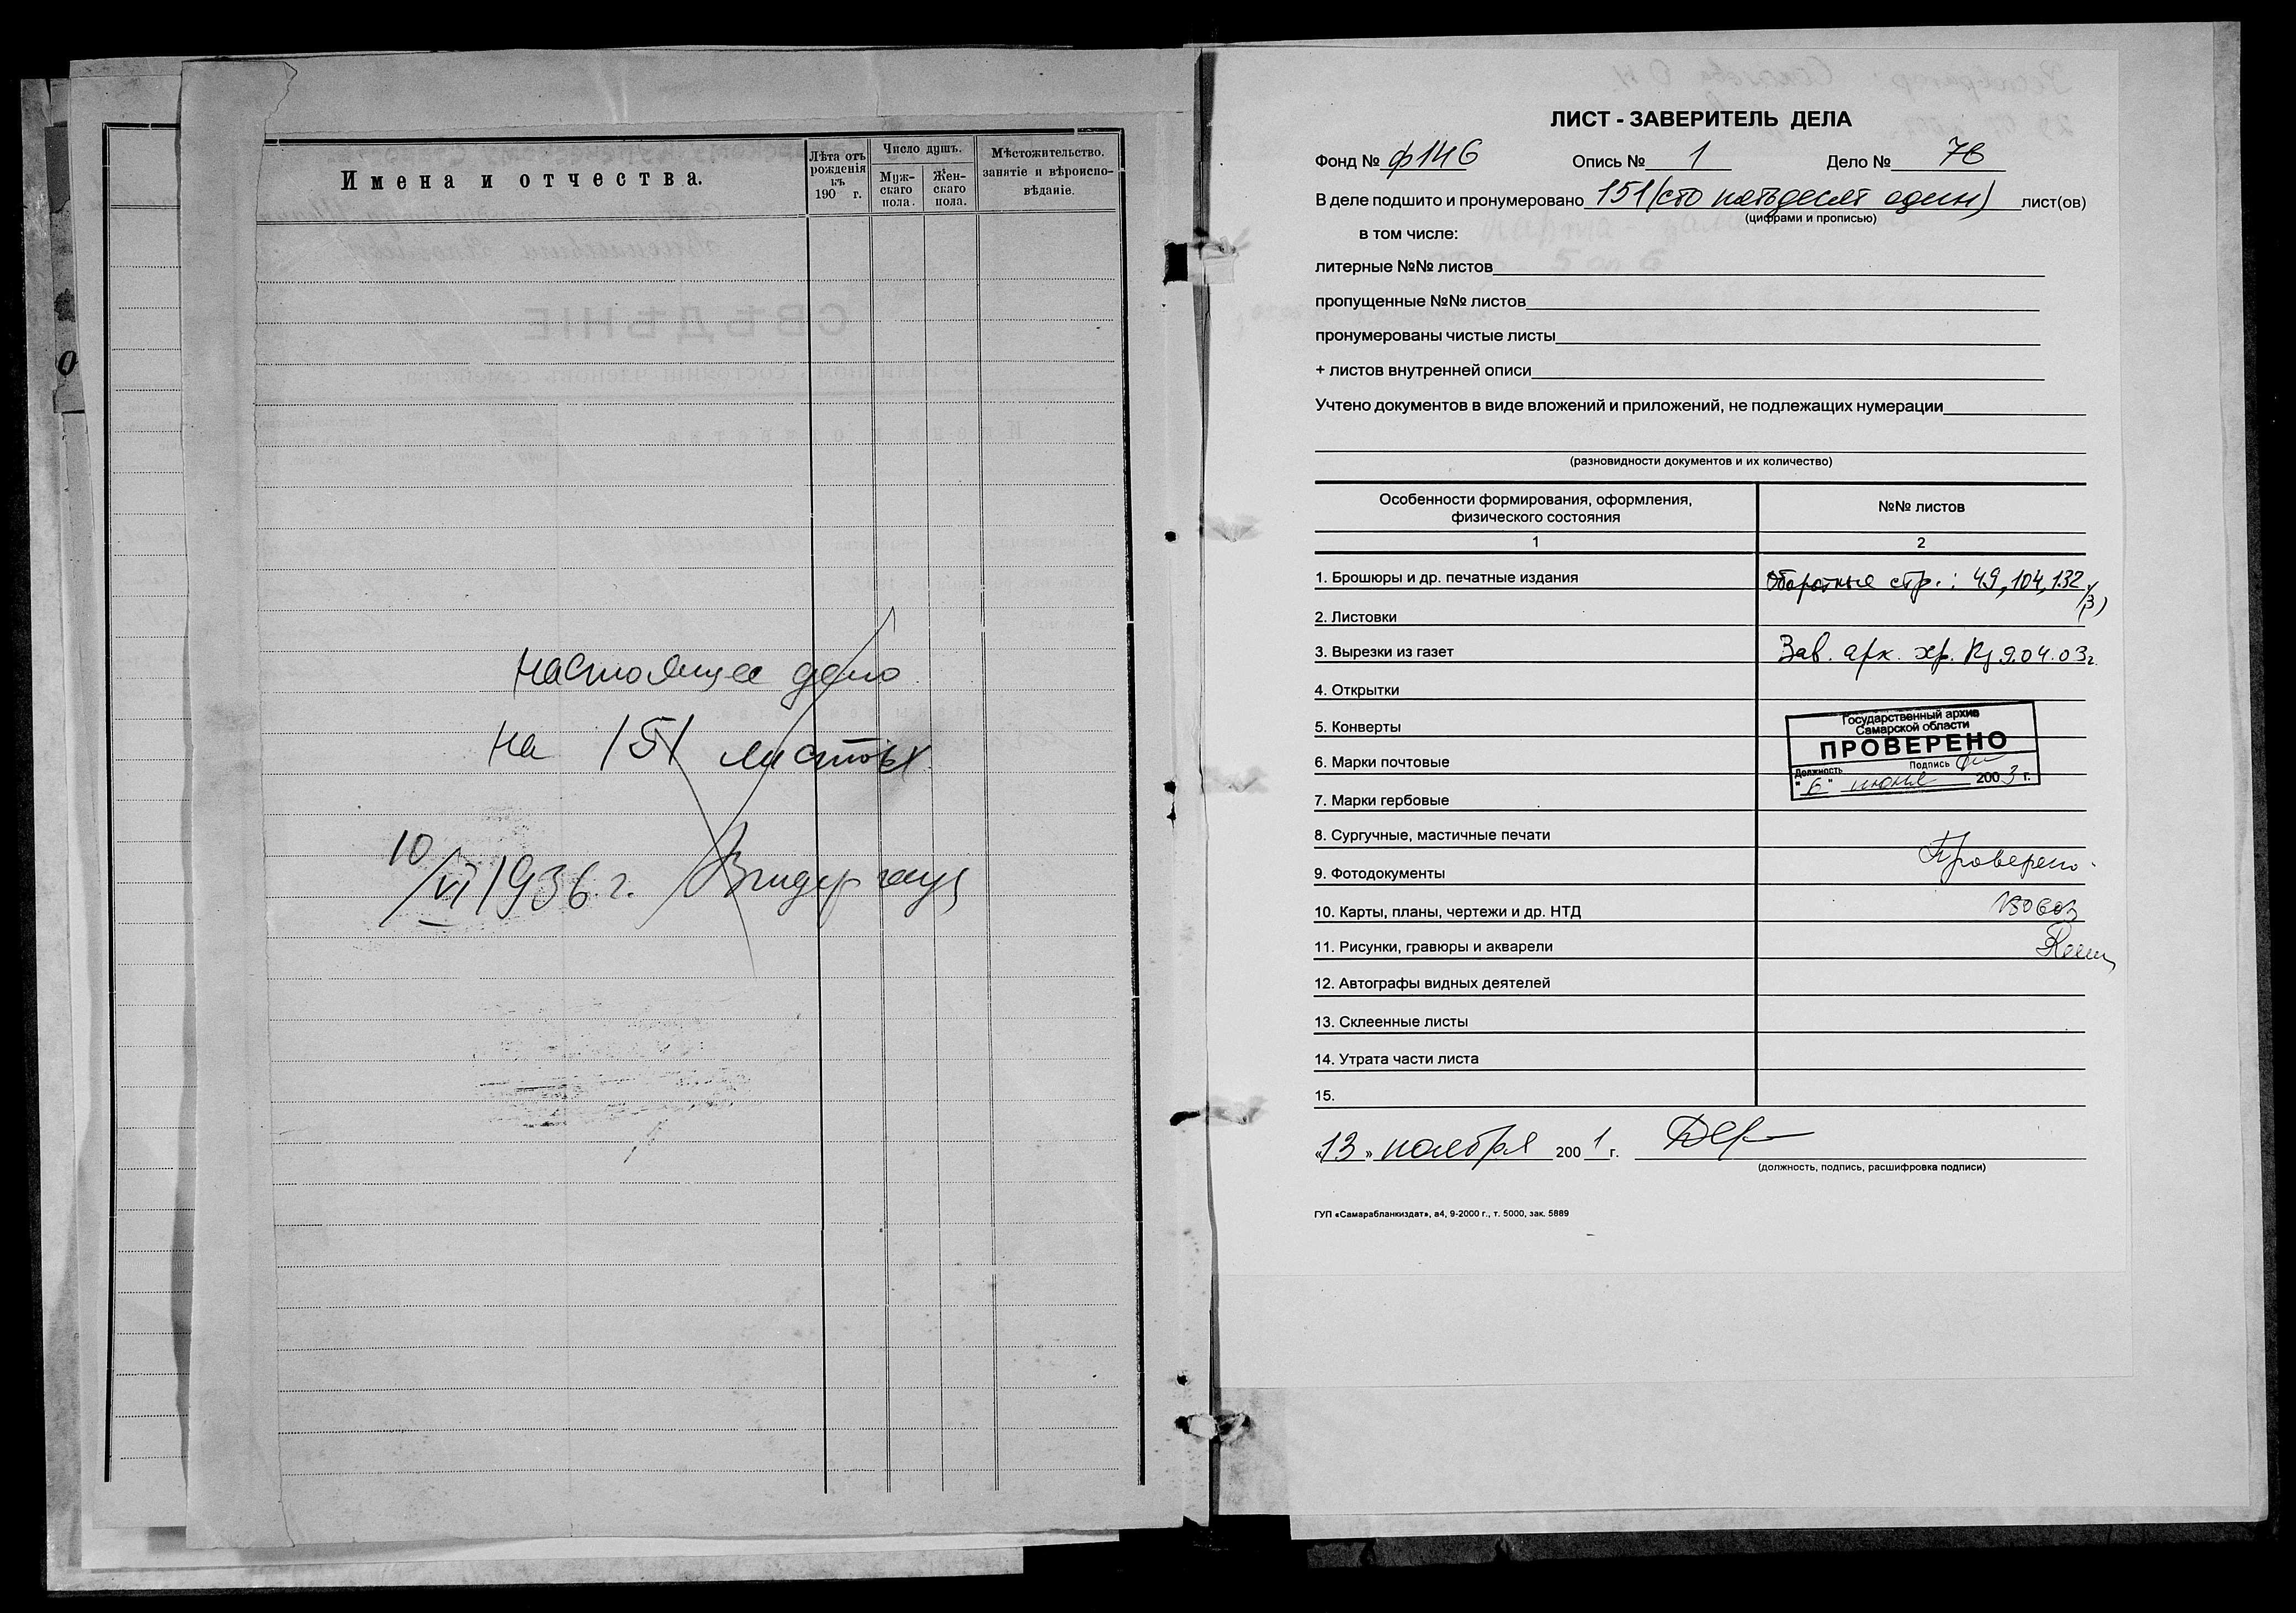 Имена и отчества.
Лѣта отъ рожденія къ 190 г.
Число душъ.
Муж-скаго пола.
Жен-скаго пола.
Мѣстожительство. занятіе и вѣроиспо-вѣданіе.
СВѢДѢНІЕ
настоящее дело
на 151 листах
10/VI 1936 г.
ЛИСТ - ЗАВЕРИТЕЛЬ ДЕЛА
Фонд № ф146 Опись № 1 Дело № 7в
В деле подшито и пронумеровано 151 (сто пятьдесят один) лист(ов)
(цифрами и прописью)
в том числе:
литерные №№ листов
пропущенные №№ листов
пронумерованы чистые листы
+ листов внутренней описи
Учтено документов в виде вложений и приложений, не подлежащих нумерации
(разновидности документов и их количество)
Особенности формирования, оформления,
физического состояния
№№ листов
1 2
1. Брошюры и др. печатные издания Оборотные стр.: 49, 104, 132
2. Листовки
3. Вырезки из газет Зав. арх. хр. 9.04.03г.
4. Открытки
5. Конверты
Государственный архив
Самарской области
ПРОВЕРЕНО
Должность Подпись
"6" июня 2003 г.
6. Марки почтовые
7. Марки гербовые
8. Сургучные, мастичные печати
Проверено
9. Фотодокументы
10. Карты, планы, чертежи и др. НТД
11. Рисунки, гравюры и акварели
12. Автографы видных деятелей
13. Склеенные листы
14. Утрата части листа
15.
«13» ноября 2001 г.
(должность, подпись, расшифровка подписи)
ГУП «Самарабланкиздат», а4, 9-2000 г., т. 5000, зак. 5889